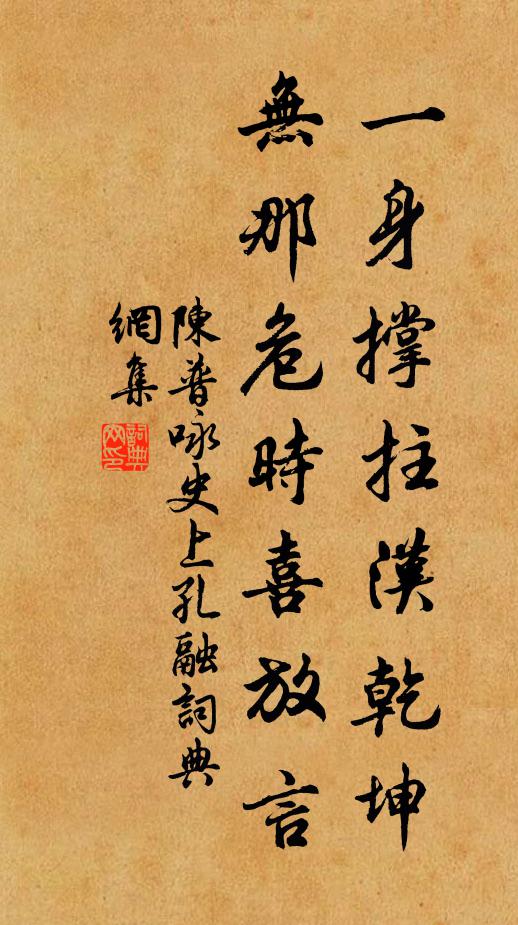 一身撑拄漢乾坤
無那危時喜放言
陳普咏史上孔融詞典
網集
詞典
网印